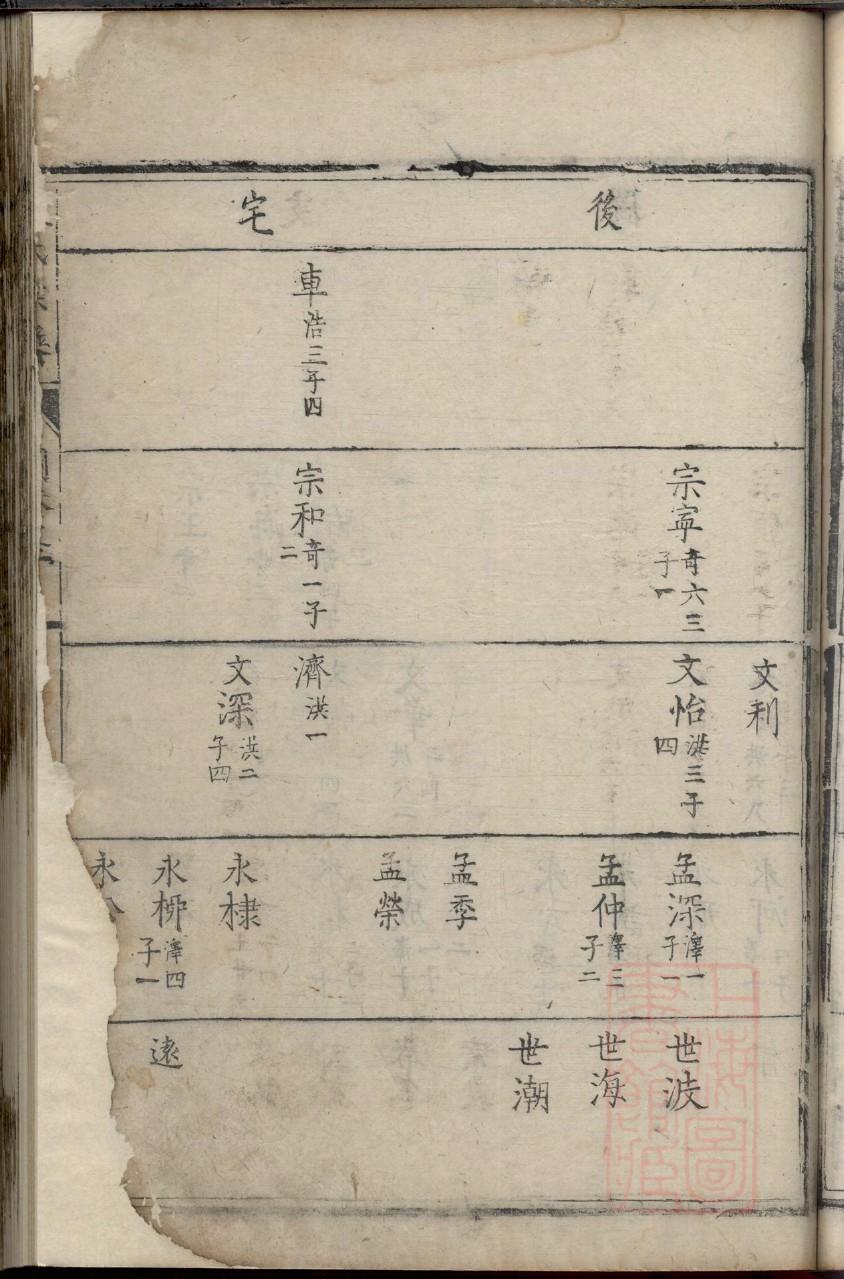 後
宅
車浩三子四
宗寧奇六三子一
宗和奇一子二
文利
文怡洪三子四
濟洪一
文深洪二子四
孟深澤一子一
孟仲澤三子二
孟季
孟榮
永棣
永栁澤四子一
永
世波
世海
世潮
遠
上海圖書館藏